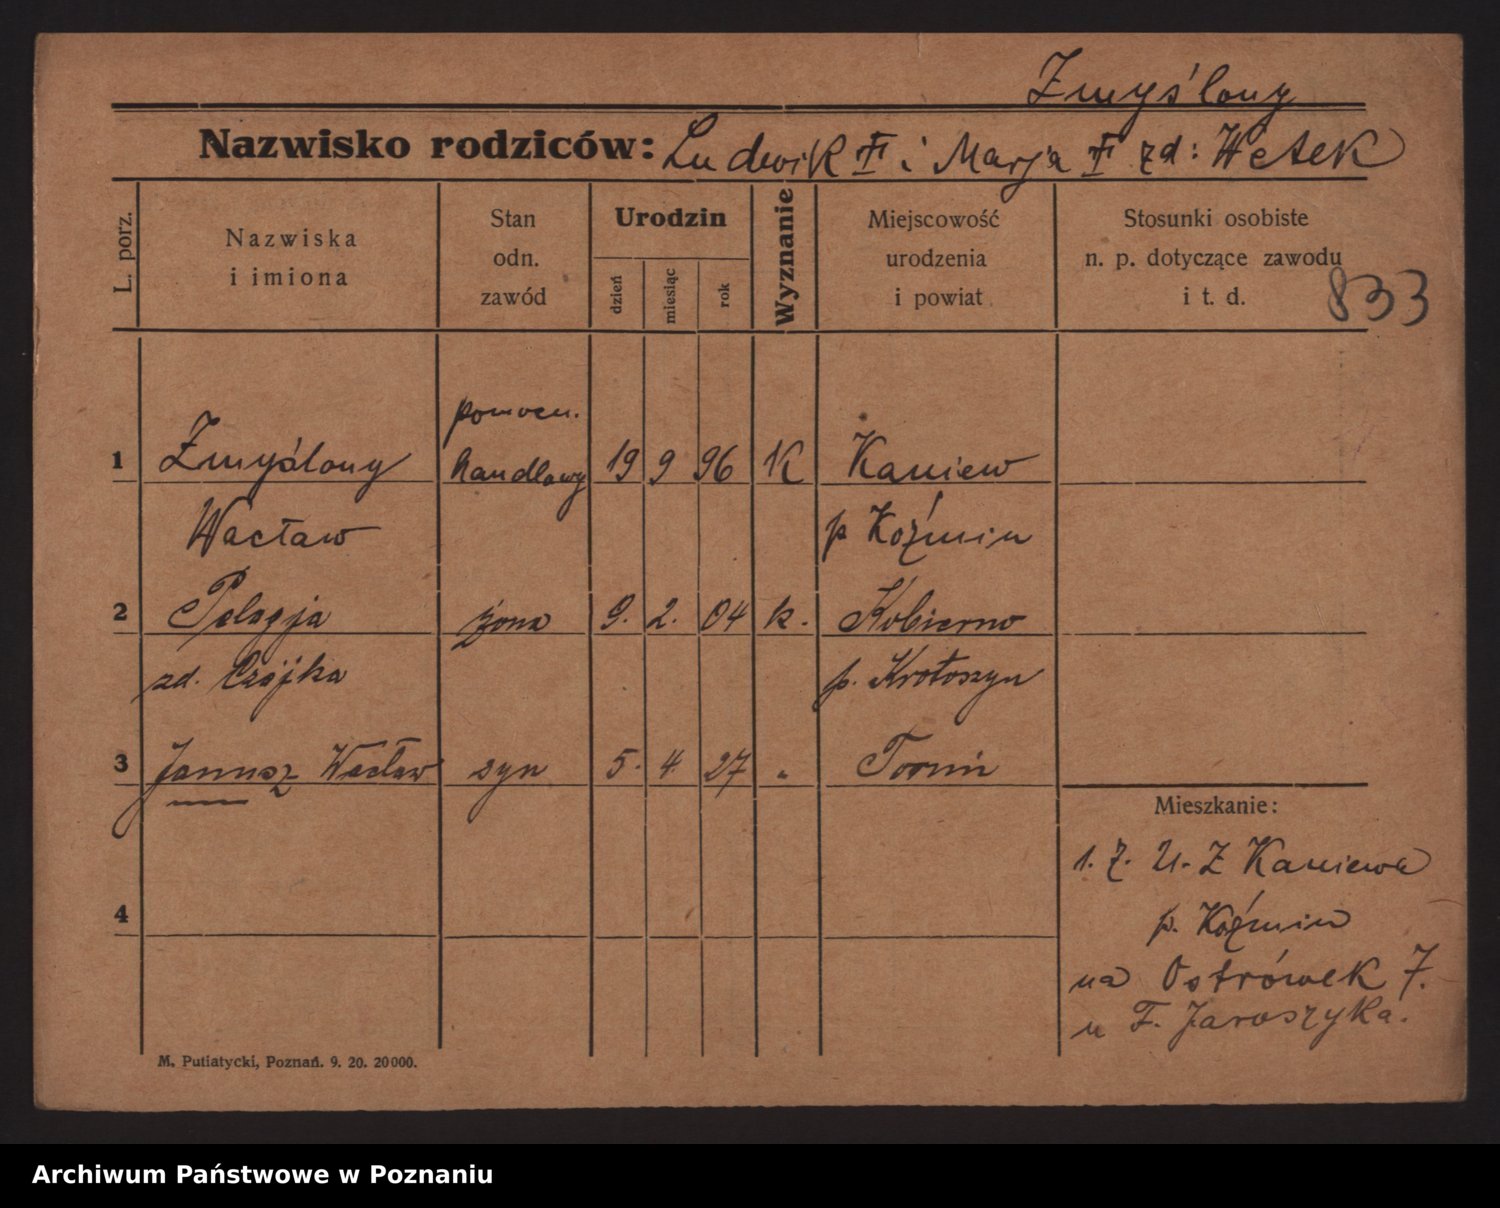 Zmyślony
Nazwisko rodziców: Ludwik i Marja zd: Wetek
L. porz.
Nazwiska
i imiona
Stan
odn.
zawód
Urodzin
dzień
miesiąc
rok
Wyznanie
Miejscowość
urodzenia
i powiat
Stosunki osobiste
n. p. dotyczące zawodu
i t. d.
833
pomocn.
1 Zmyślony handlowy 19 9 96 K Kaniew
Wacław p Koźmin
2 Pelagja żona 9. 2. 04 k. Kobierno
zd. Czajka p. Krotoszyn
3 Janusz Wacław syn 5. 4. 27 " Toruń
Mieszkanie:
1. 7. 21. Z Kaniewa
4
p. Koźmin
na Ostrówek 7.
u F. Jaroszyka.
M. Putiatycki, Poznań. 9. 20. 20000.
Archiwum Państwowe w Poznaniu